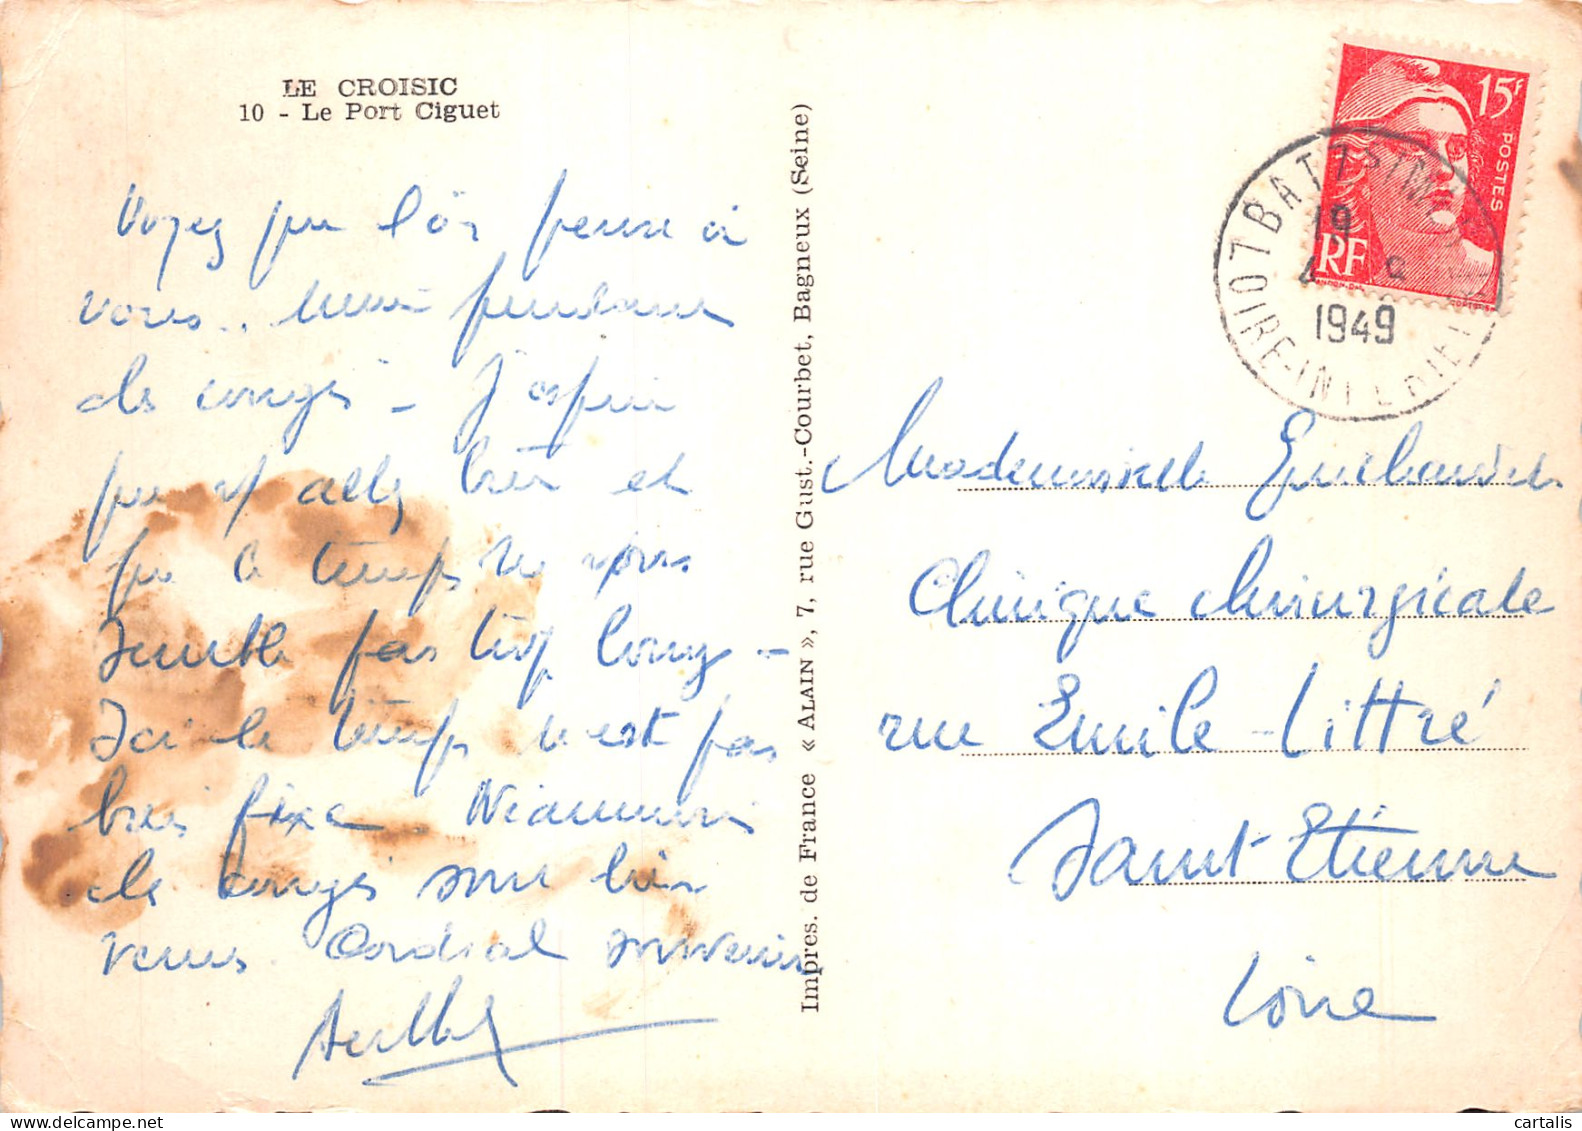 LE CROISIC
10 - Le Port Ciguet
Voyez que l'on pense à
vous.. même pendant
les congés - J'espère
que vs allez bien et
que le temps ne vous
semble pas trop long -
Ici le temps n'est pas
bien fixe. Néanmoins
les congés sont bien
venus. Cordial souvenir
Impres. de France « ALAIN », 7, rue Gust.-Courbet, Bagneux (Seine)
15F
POSTES
RF
BATZ S/MER
19
4
1949
LOIRE-INFERIEURE
Mademoiselle
Clinique chirurgicale
rue Emile-Littré
Saint-Etienne
Loire
cartalis